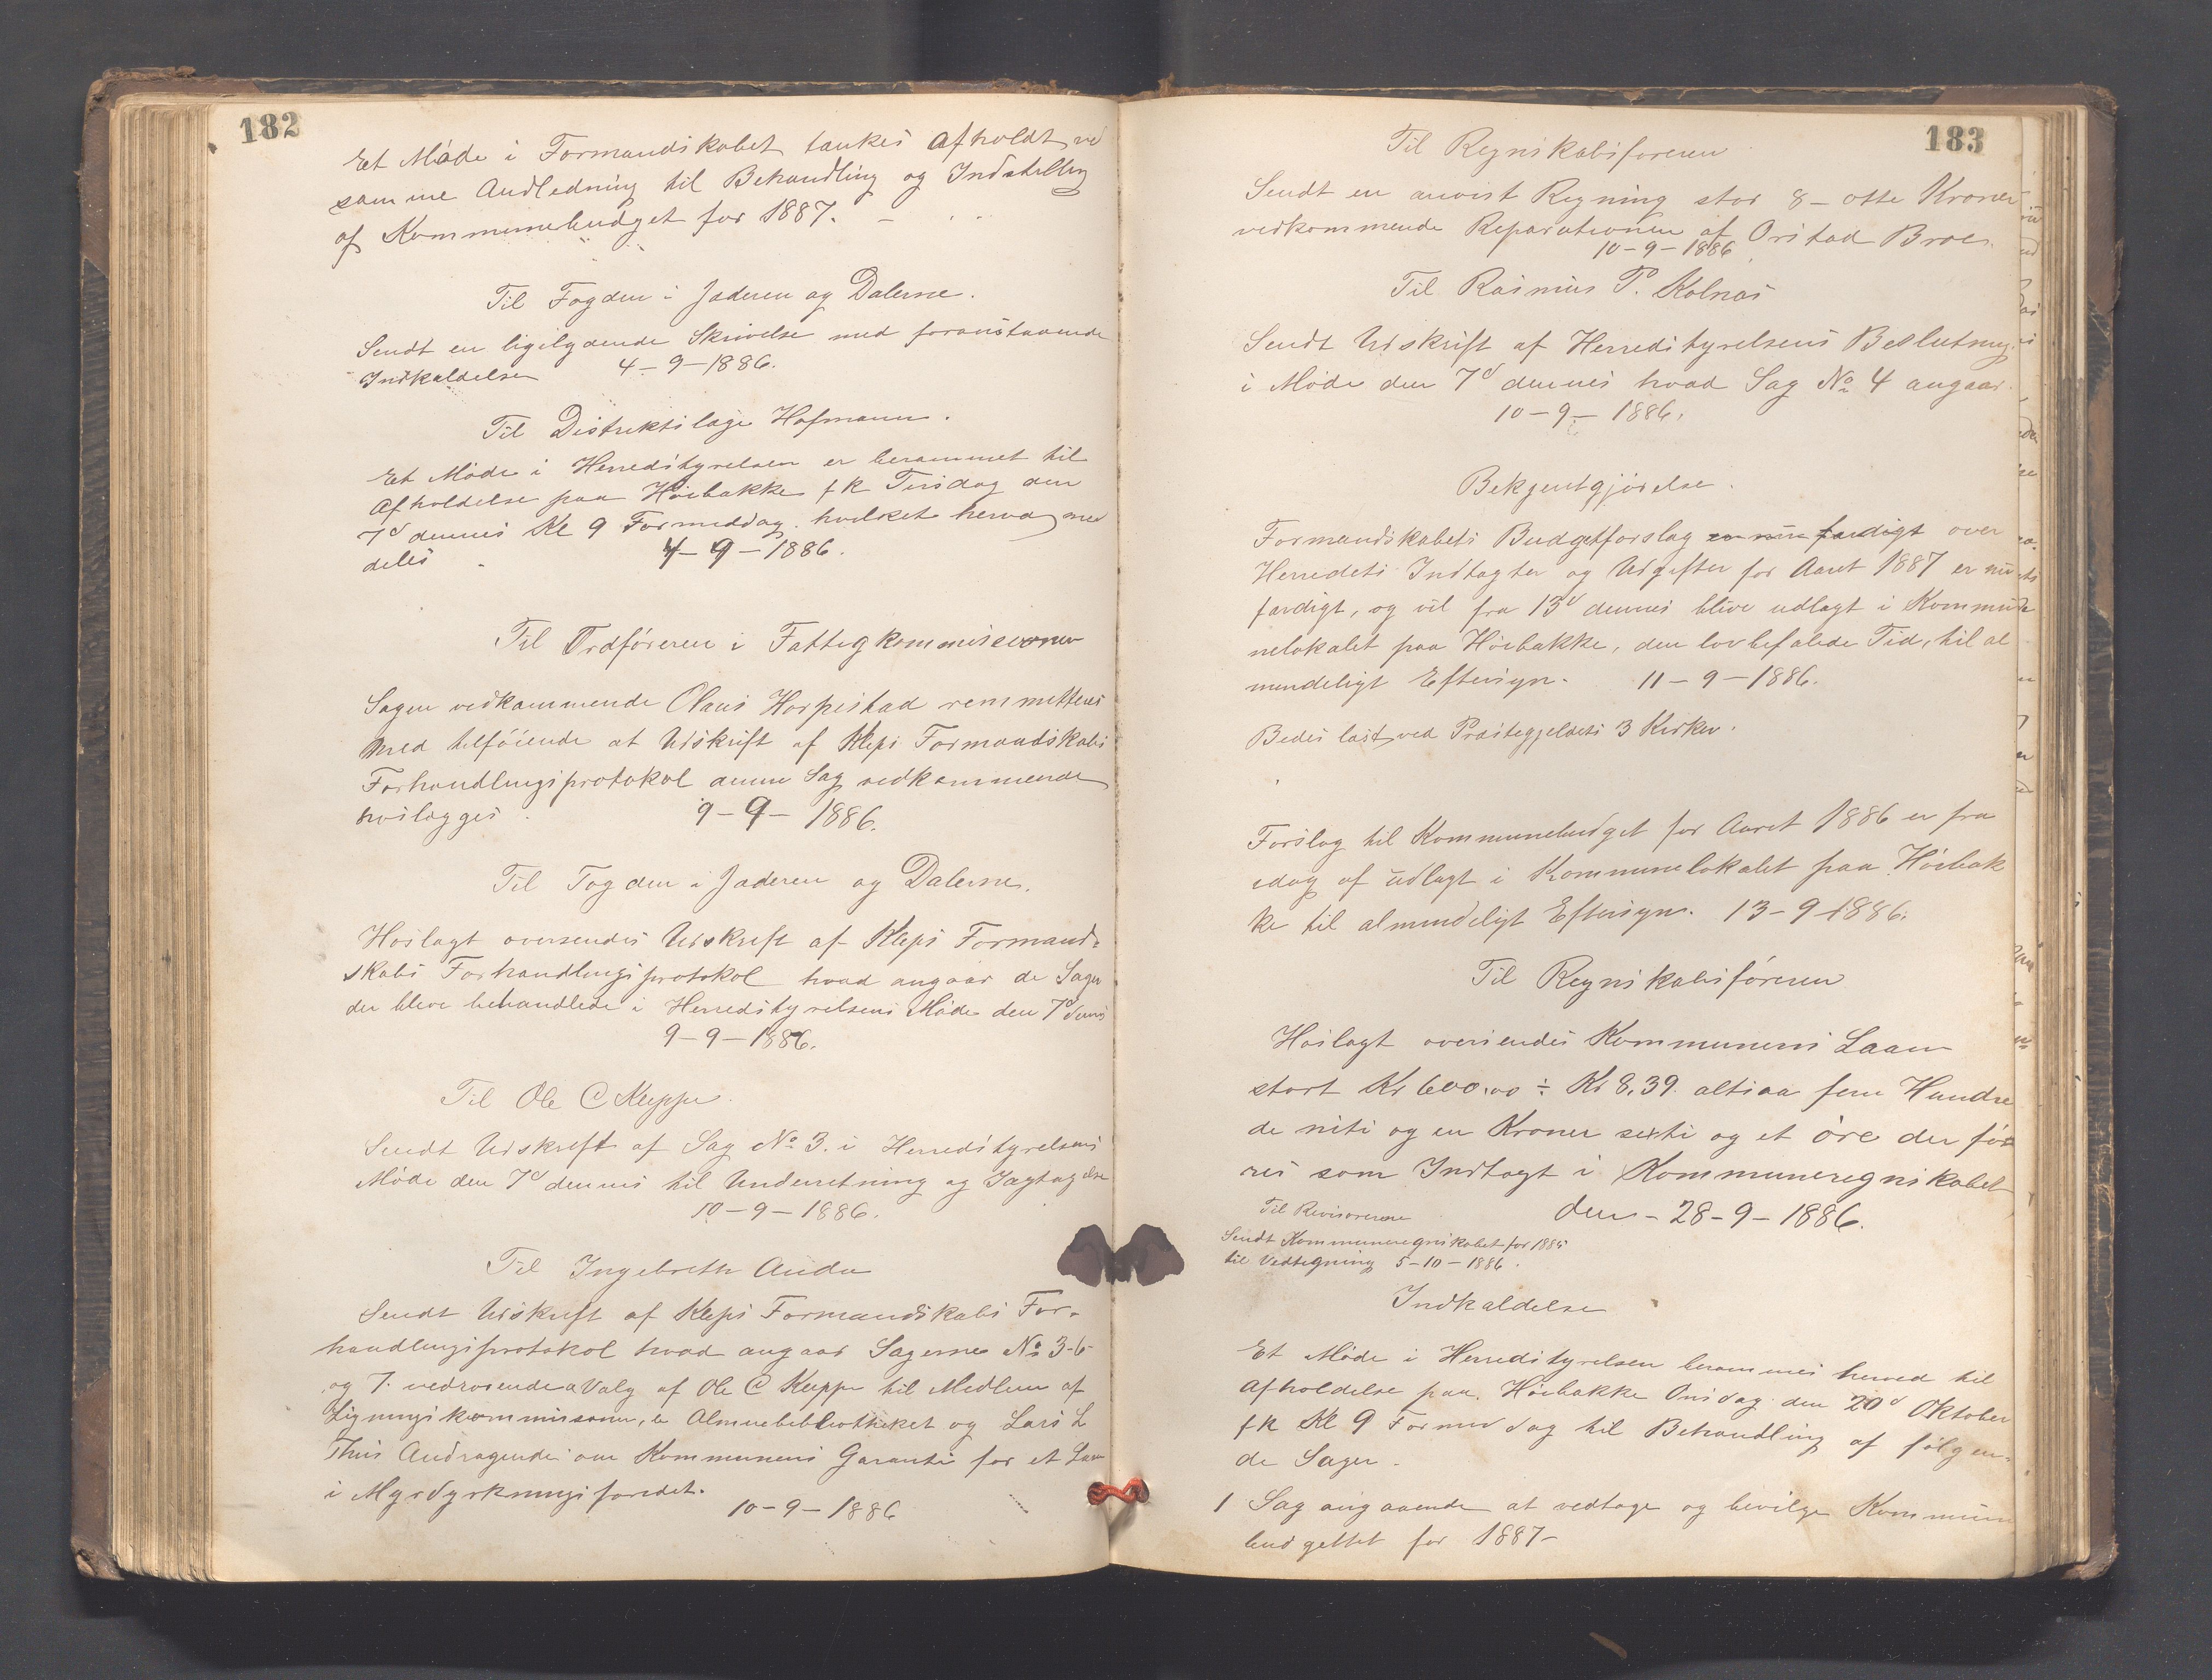 182
Et Møde i Formandskabet tænkes afholdt ved
samme Andledning til Behandling og Indstilling
af Kommunebudget for 1887.
Til Fogden i Jæderen og Dalerne.
Sendt en ligelydende Skrivelse med foranstaaende
Indkaldelse 4-9-1886.
Til Distriktslæge Hofmann.
Et Møde i Herredstyrelsen er berammet til
Afholdelse paa Høibakke fk Tirsdag den
7d dennes Kl 9 Formiddag hvilket herved med
deles 4-9-1886.
Til Ordføreren i Fattigkommissionen
Sagen vedkommende Olaus Horpestad remmitteres
med tilføiende at Udskrift af Kleps Formandskabs
Forhandlingsprotokol denne Sag vedkommende
hoslægges 9-9-1886.
Til Fogden i Jæderen og Dalerne.
Hoslagt oversendes Udskrift af Kleps Formand-
skabs Forhandlingsprotokol hvad angaar de Sager
der bleve behandlede i Herredstyrelsens Møde den 7d dennes
9-9-1886.
Til Ole C Kleppe.
Sendt Udskrift af Sag No 3. i Herredstyrelsens
Møde den 7d dennes til Underretning og Iagtagelse
10-9-1886.
Til Ingebreth Anda
Sendt Udskrift af Kleps Formandskabs For-
handlingsprotokol hvad angaar Sagerne No 3-6
og 7. vedrørende Valg af Ole C Kleppe til Medlem af
Ligningskommissionen, Almuebibliotheket og Lars L
Thus Andragende om Kommunens Garanti for et Laan
i Myrdyrkningsfondet.
10-9-1886
183
Til Regnskabsføreren
Sendt en anvist Regning stor 8 - otte Kroner
vedkommende Reparationen af Orstad Broe.
10-9-1886
Til Rasmus P. Kolnæs
Sendt Udskrift af Herredstyrelsens Beslutning
i Møde den 7d dennes hvad Sag No 4 angaar.
10-9-1886.
Bekjentgjørelse.
Formandskabets Budgetforslag er nu færdigt over
Herredets Indtægter og Udgifter for Aaret 1887 er nu
færdigt, og vil fra 13d dennes blive udlagt i Kommu
nelokalet paa Høibakke, den lovbefalede Tid, til al
mindeligt Eftersyn. 11-9-1886.
Bedes læst ved Præstegjeldets 3 Kirker.
Forslag til Kommunebudget for Aaret 1886 er fra
idag af udlagt i Kommunelokalet paa Høibak
ke til almindeligt Eftersyn. 13-9-1886.
Til Regnskabsføreren
Hoslagt oversendes Kommunens Laan
stort Kr 600.00 ÷ Kr 8.39. altsaa fem Hundre
de niti og en Kroner sexti og et øre der fø
res som Indtægt i Kommuneregnskabet
den - 28-9-1886.
Til Revisorerne
Sendt Kommuneregnskabet for 1885
til Vedtegning 5-10-1886.
Indkaldelse
Et Møde i Herredstyrelsen berammes herved til
Afholdelse paa Høibakke Onsdag den 20d Oktober
fk Kl 9 Formiddag til Behandling af følgen-
de Sager.
1 Sag angaaende at vedtage og bevilge Kommune
budgettet for 1887-